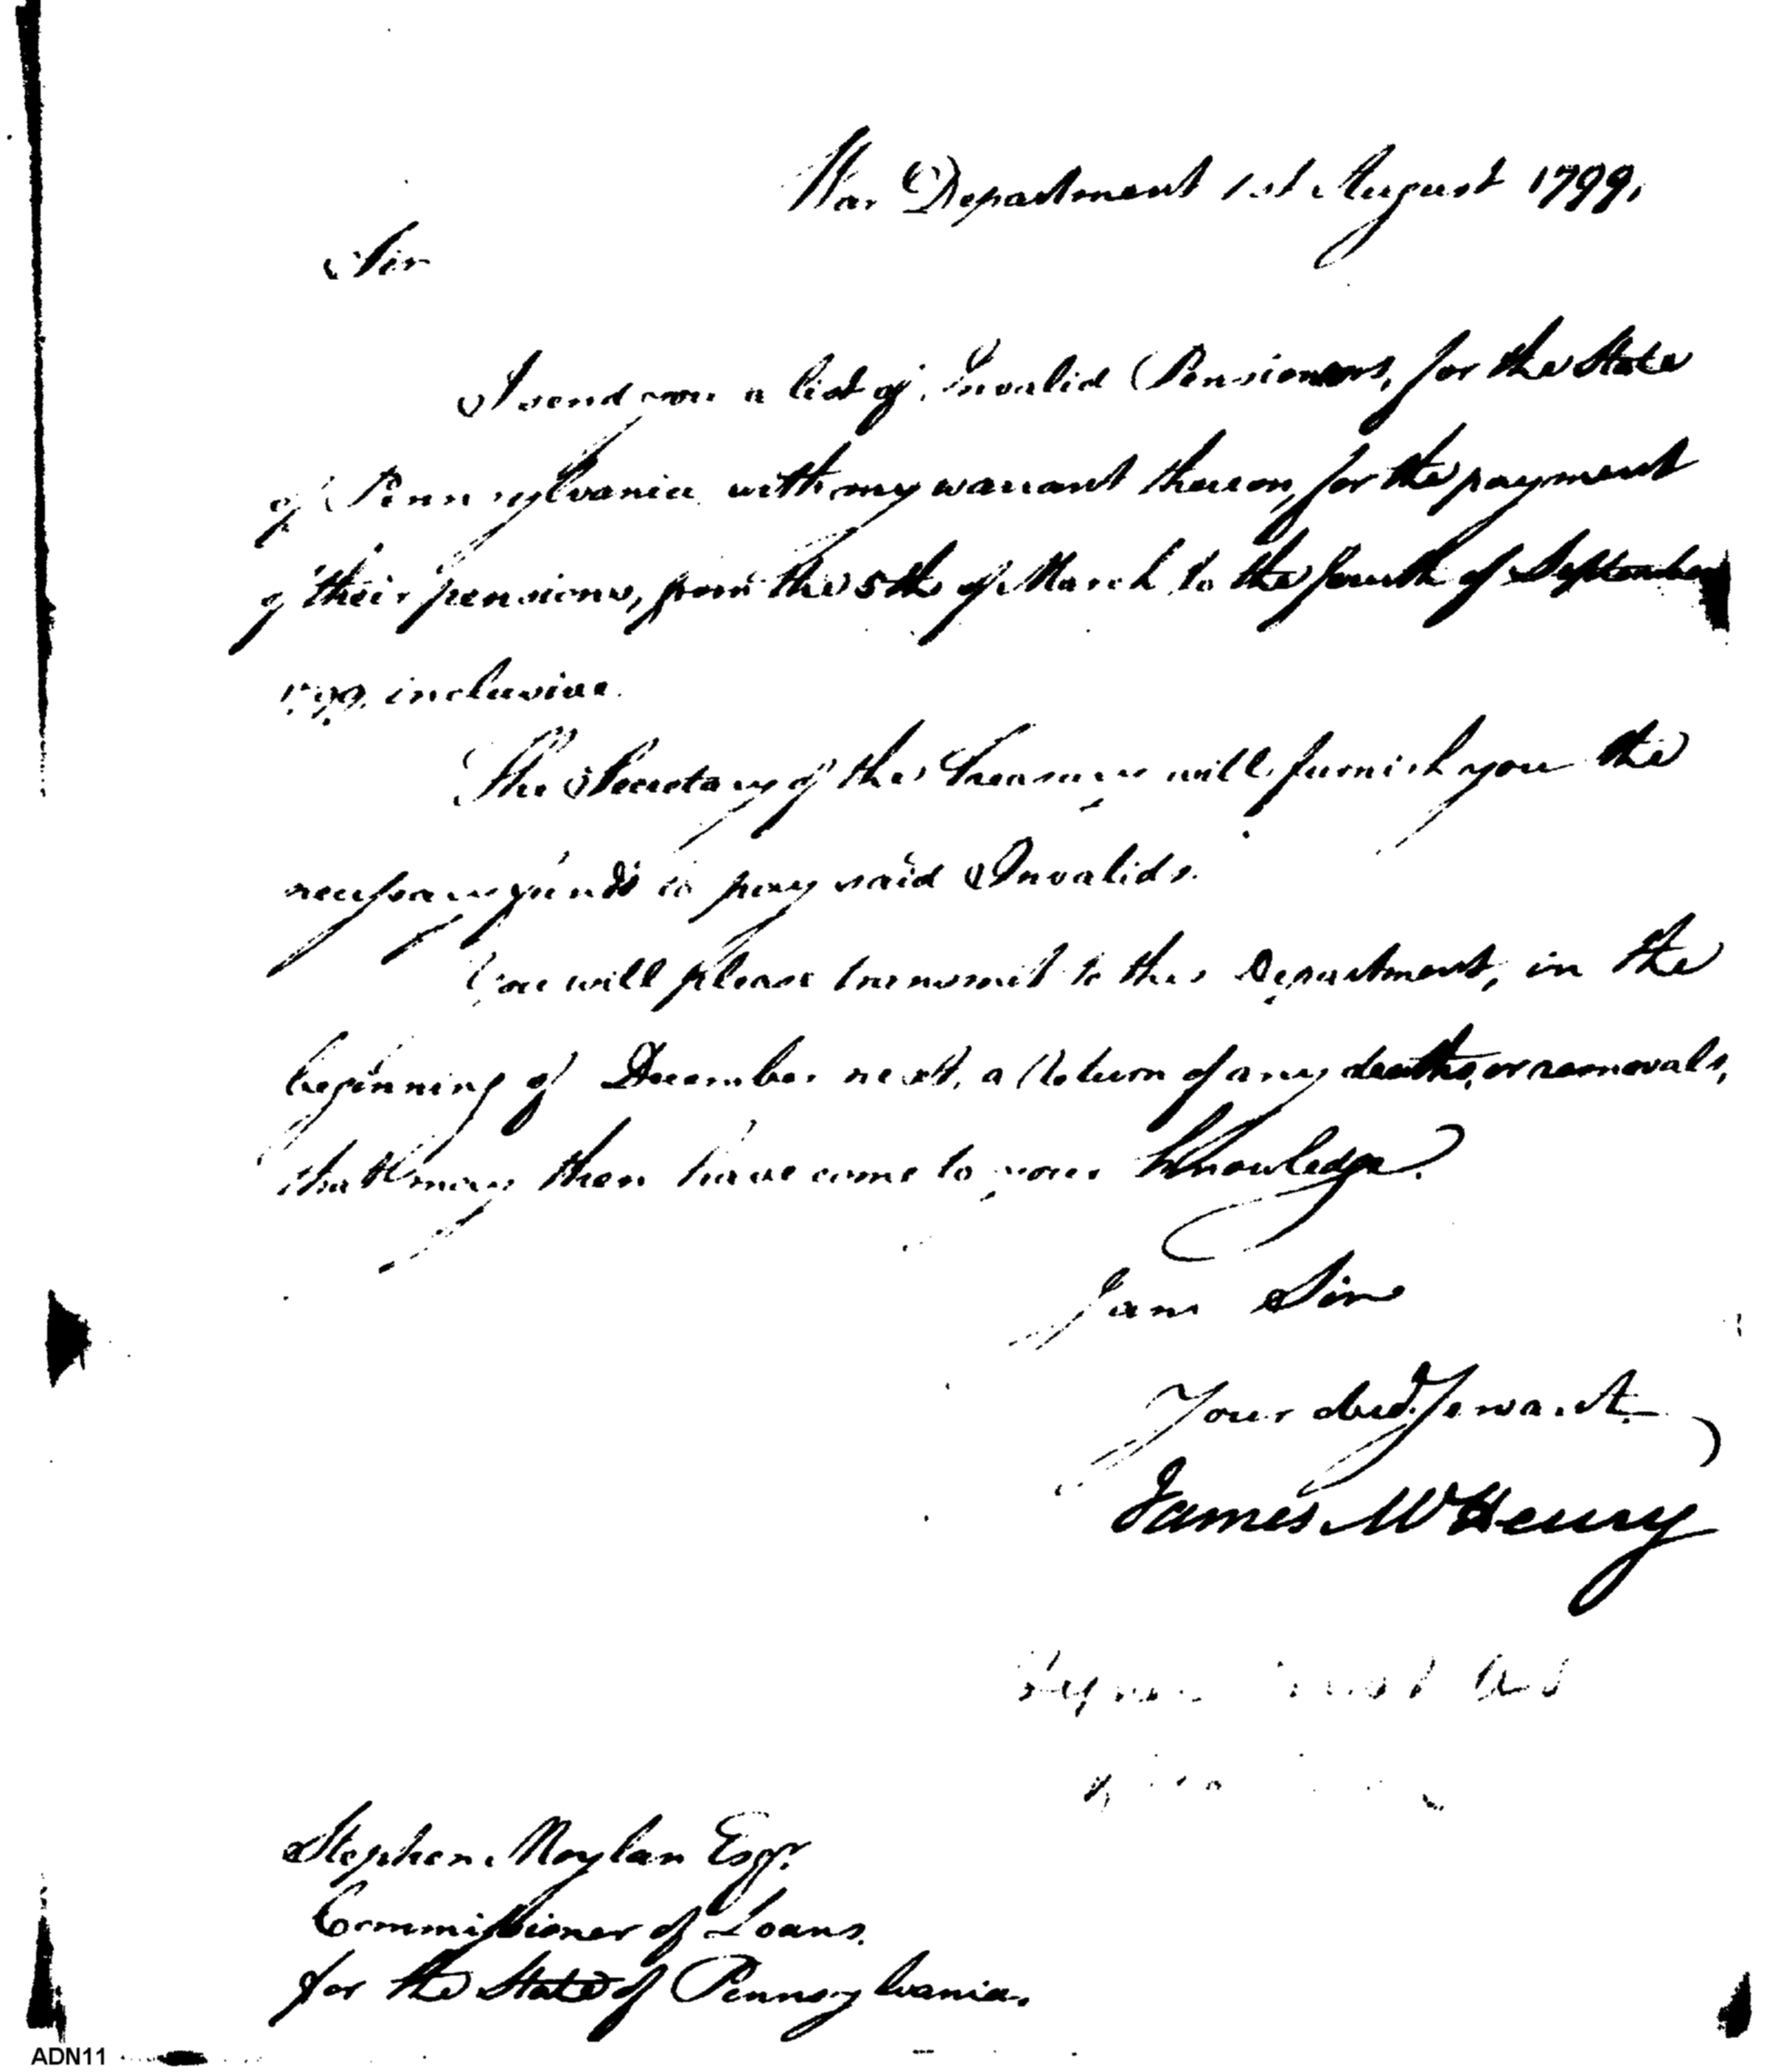 War Department 1st August 1799.
Sir
I send you a list of Invalid Pensioners, for the State
of Pennsylvania with my warrant thereon, for the payment
of their pensions, from the 5th of March to the fourth of September
1799. inclusive.
The Secretary of the Treasury will furnish you the
necessary funds to pay said Invalids.
You will please transmit to this Department, in the
beginning of December next, a Return of any deaths, or removals,
that may then have come to your knowledge.
I am Sir
Your obed. Servant
James McHenry
Stephen Moylan Esqr.
Commissioner of Loans.
for the State of Pennsylvania.
ADN11